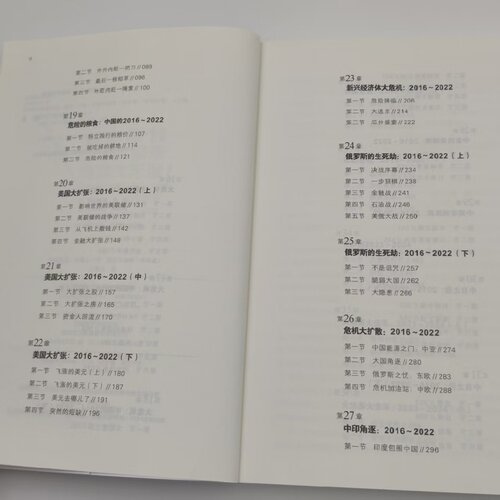 第二节 外外内蛇一把刀//089
第三节 最后一根稻草//096
第四节 外匪内贼一绳索//100
第19章
危险的粮食：中国的2016～2022
第一节 特立独行的粮价//107
第二节 被吃掉的耕地//114
第三节 危险的粮食//121
第20章
美国大扩张：2016～2022（上）
第一节 影响世界的美联储//131
第二节 美联储的战争//137
第三节 从飞机上撒钱//142
第四节 金融大扩张//148
第21章
美国大扩张：2016～2022（中）
第一节 大扩张之殇//157
第二节 大扩张之房//165
第三节 资金大回流//170
第22章
美国大扩张：2016～2022（下）
第一节 飞涨的美元（上）//180
第二节 飞涨的美元（下）//187
第三节 美元去哪儿了//191
第四节 突然的短缺//196
第23章
新兴经济体大危机：2016～2022
第一节 危险降临//206
第二节 大逃亡//212
第三节 后步盛宴//222
第24章
俄罗斯的生死劫：2016～2022（上）
第一节 决战序幕//234
第二节 一步狠棋//238
第三节 金融战//241
第四节 石油战//246
第五节 美俄大战//250
第25章
俄罗斯的生死劫：2016～2022（下）
第一节 不是诅咒//257
第二节 脆弱大国//262
第三节 大隐患//266
第26章
危机大扩散：2016～2022
第一节 中国能源之门：中亚//274
第二节 大国角逐//280
第三节 俄罗斯之忧：东欧//283
第四节 危机加油站：中欧//288
第27章
中印角逐：2016～2022
第一节 印度包围中国//296